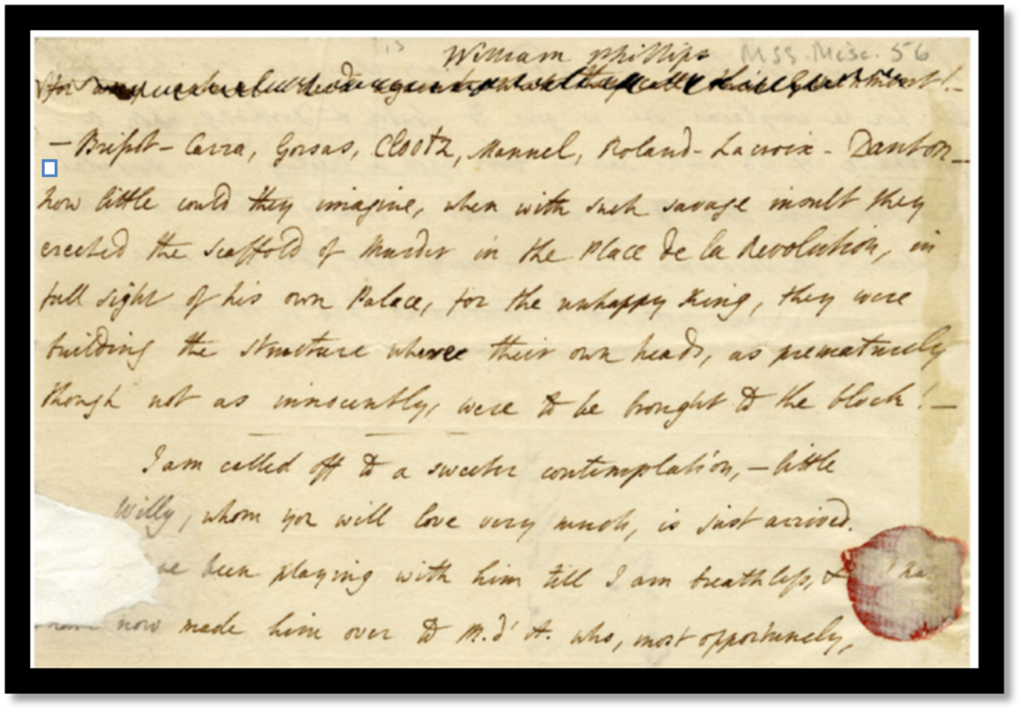 William Phillips MSS. Misc. 56
for
– Brissot – Carra, Gorsas, Clootz, Manuel, Roland – Lacroix – Danton –
how little could they imagine, when with such savage insult they
erected the scaffold of Murder in the Place de la Revolution, in
full sight of his own Palace, for the unhappy King, they were
building the structure where their own heads, as prematurely
though not as innocently, were to be brought to the block! –
I am called off to a sweeter contemplation, – little
Willy, whom you will love very much, is just arrived.
ve been playing with him till I am breathless, & ha
now made him over to M. d'A. who, most opportunely,